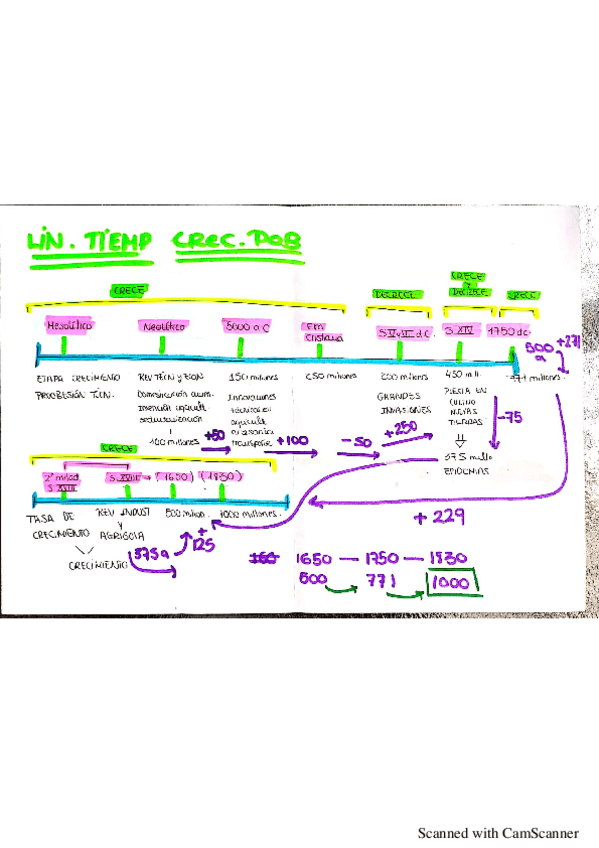 LIN. TIEMP CREC. POB
CRECE
DECRECE
CRECE
Y
DECRECE
CRECE
Mesolítico
Neolítico
5000 a.C
Era
Cristiana
S. V-VII d.C.
S. XIV
1750 d.C
500
a
+271
ETAPA CRECIMIENTO
PROGRESIÓN TÉCN.
REV TÉCN y ECON
Domesticación anim.
invención agricult
sedentarización
↓
100 millones
+50
150 millones
Innovaciones
técnicas en
agricult
artesanía
transporte
+100
250 millones
-50
200 millones
GRANDES
INVASIONES
+250
450 mill.
PUESTA EN
CULTIVO
NUEVAS
TIERRAS
⇓
-75
375 mills
EPIDEMIAS
771 millones.
CRECE
2ª mitad
S. XVII
S. XVIII
(1650)
(1830)
TASA DE
CRECIMIENTO
REV INDUST
y
AGRÍCOLA
500 millon.
1000 millones.
CRECIMIENTO
375 a
+
125
+ 229
1650 — 1750 — 1830
500
771
1000
Scanned with CamScanner